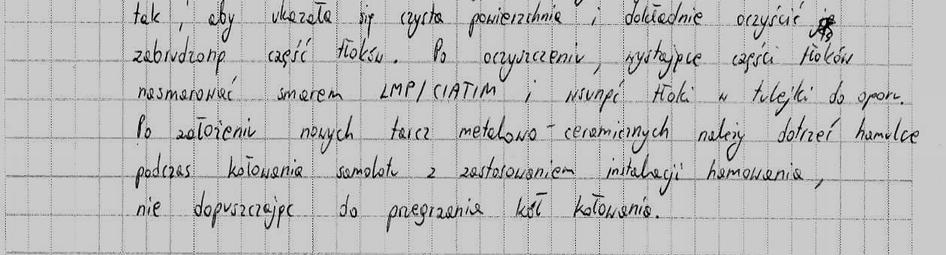 tak, aby ukazała się czysta powierzchnia i dokładnie oczyścić
zabrudzoną część tłoków. Po oczyszczeniu, wystające części tłoków
nasmarować smarem LMP/CIATIM i wsunąć tłoki w tulejki do oporu.
Po założeniu nowych tarcz metalowo-ceramicznych należy dotrzeć hamulce
podczas kołowania samolotu z zastosowaniem instalacji hamowania,
nie dopuszczając do przegrzania kół kołowania.